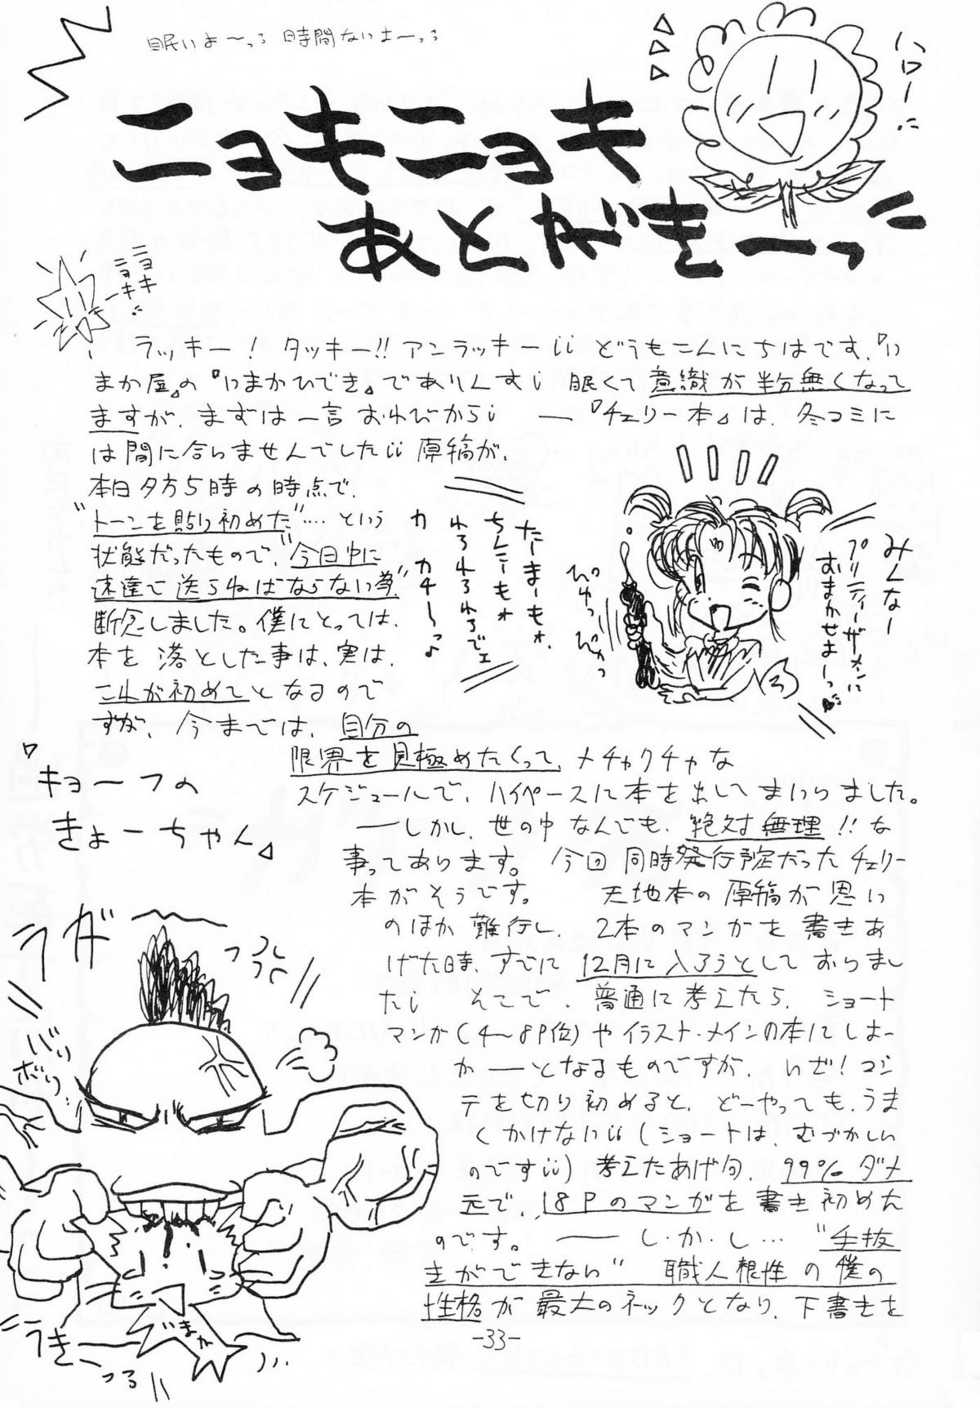 眠いよ〜っ 時間ないよーっ
ハロー
ニョキニョキ
あとがきーっ
ニョキ
ニョキ
ラッキー! タッキー!! アンラッキーii どうもこんにちはです、『い
まか屋』の『いまかひでき』でありんすi 眠くて意識が半分無くなって
ますが、まずは一言おわびからi ―『チェリー本』は、冬コミに
は間に合いませんでしたii 原稿が、
本日夕方5時の時点で、
"トーンを貼り初めた"…という
状態だったもので、"今日中に
速達で送らねばならない為"
断念しました。僕にとっては、
本を落とした事は、実は、
これが初めてとなるので
すが、今までは、自分の
限界を見極めたくって、メチャクチャな
スケジュールで、ハイペースに本を出してまいりました。
―しかし、世の中なんでも、絶対無理!!な
事ってあります。今回同時発行予定だったチェリー
本がそうです。 天地本の原稿が思い
のほか難行し、2本のマンガを書きあ
げた時、すでに12月に入ろうとしておりまし
たi そこで、普通に考えたら、ショート
マンガ(4〜8P位)やイラスト・メインの本にしよー
か―となるものですが、いざ!コン
テを切り初めると、どーやっても、うま
くかけないii(ショートは、むづかしい
のですii)考えたあげ句、99%ダメ
元で、18Pのマンガを書き初めた
のです。―し・か・し…"手抜
きができない"職人根性の僕の
性格が最大のネックとなり、下書きを
たーまーもォ、
ちんこーもォ
われわれでェ
カ カチ〜っ♪
みんなー
プリティーサミーに
おまかせよーっ♥
ぴゅっ ぴゅっ
『キョーフの
きょーちゃん』
ガ
フルフル
バリ
ボリ
いまか
うきっ
つる
-33-